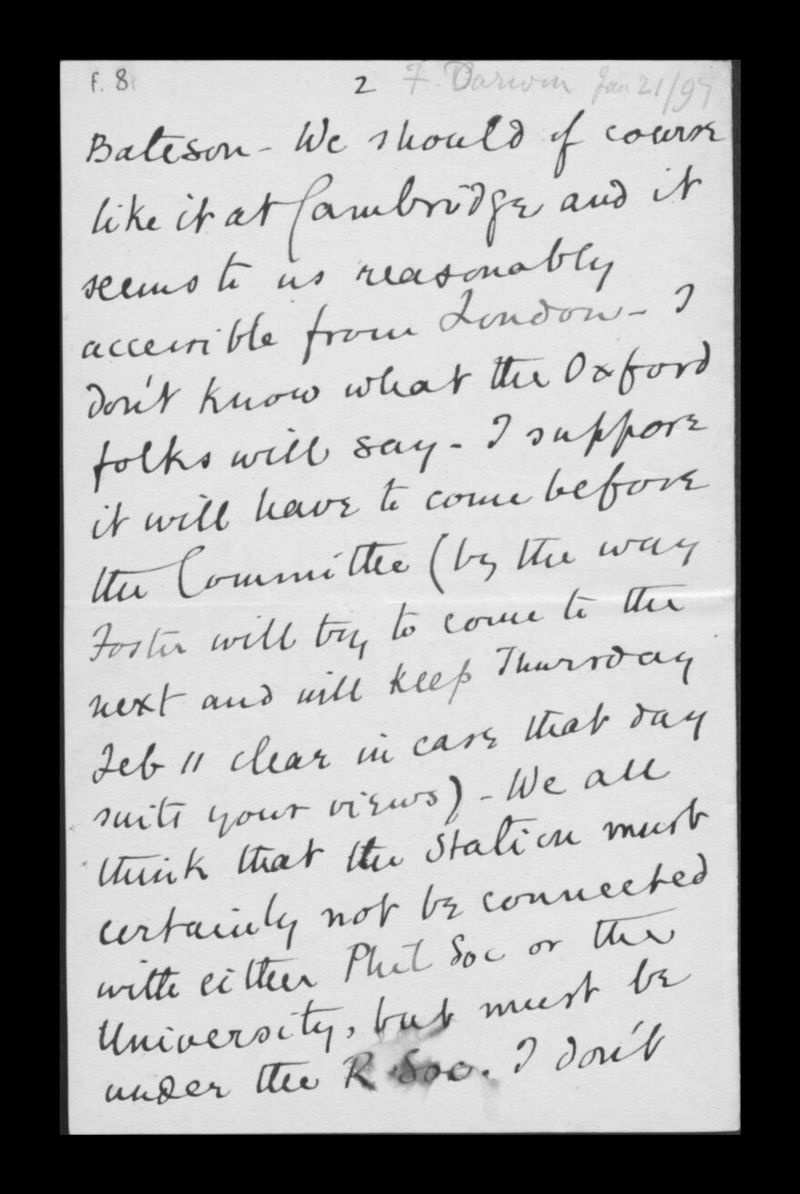 f. 8 2 F. Darwin Jan 21/97
Bateson - We should of course
like it at Cambridge and it
seems to us reasonably
accessible from London - I
don't know what the Oxford
folks will say - I suppose
it will have to come before
the Committee (by the way
Foster will try to come to the
next and will keep Thursday
Feb 11 clear in case that day
suits your views) - We all
think that the Station must
certainly not be connected
with either Phil Soc or the
University, but must be
under the R Soc. I don't